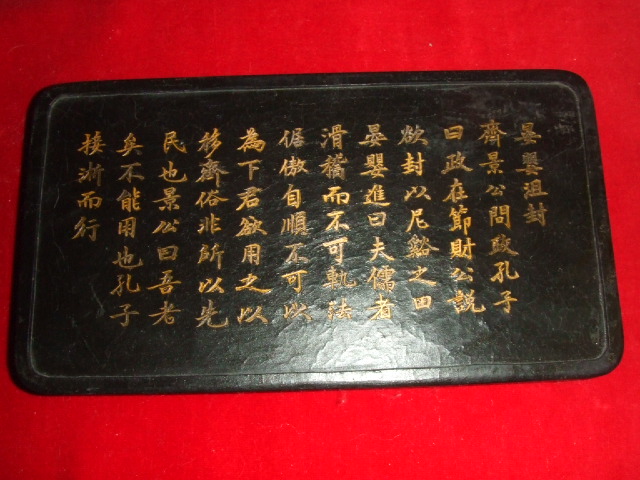 晏嬰沮封
齊景公問政孔子
曰政在節財公說
欲封以尼谿之田
晏嬰進曰夫儒者
滑稽而不可軌法
倨傲自順不可以
為下君欲用之以
移齊俗非所以先
民也景公曰吾老
矣不能用也孔子
接淅而行